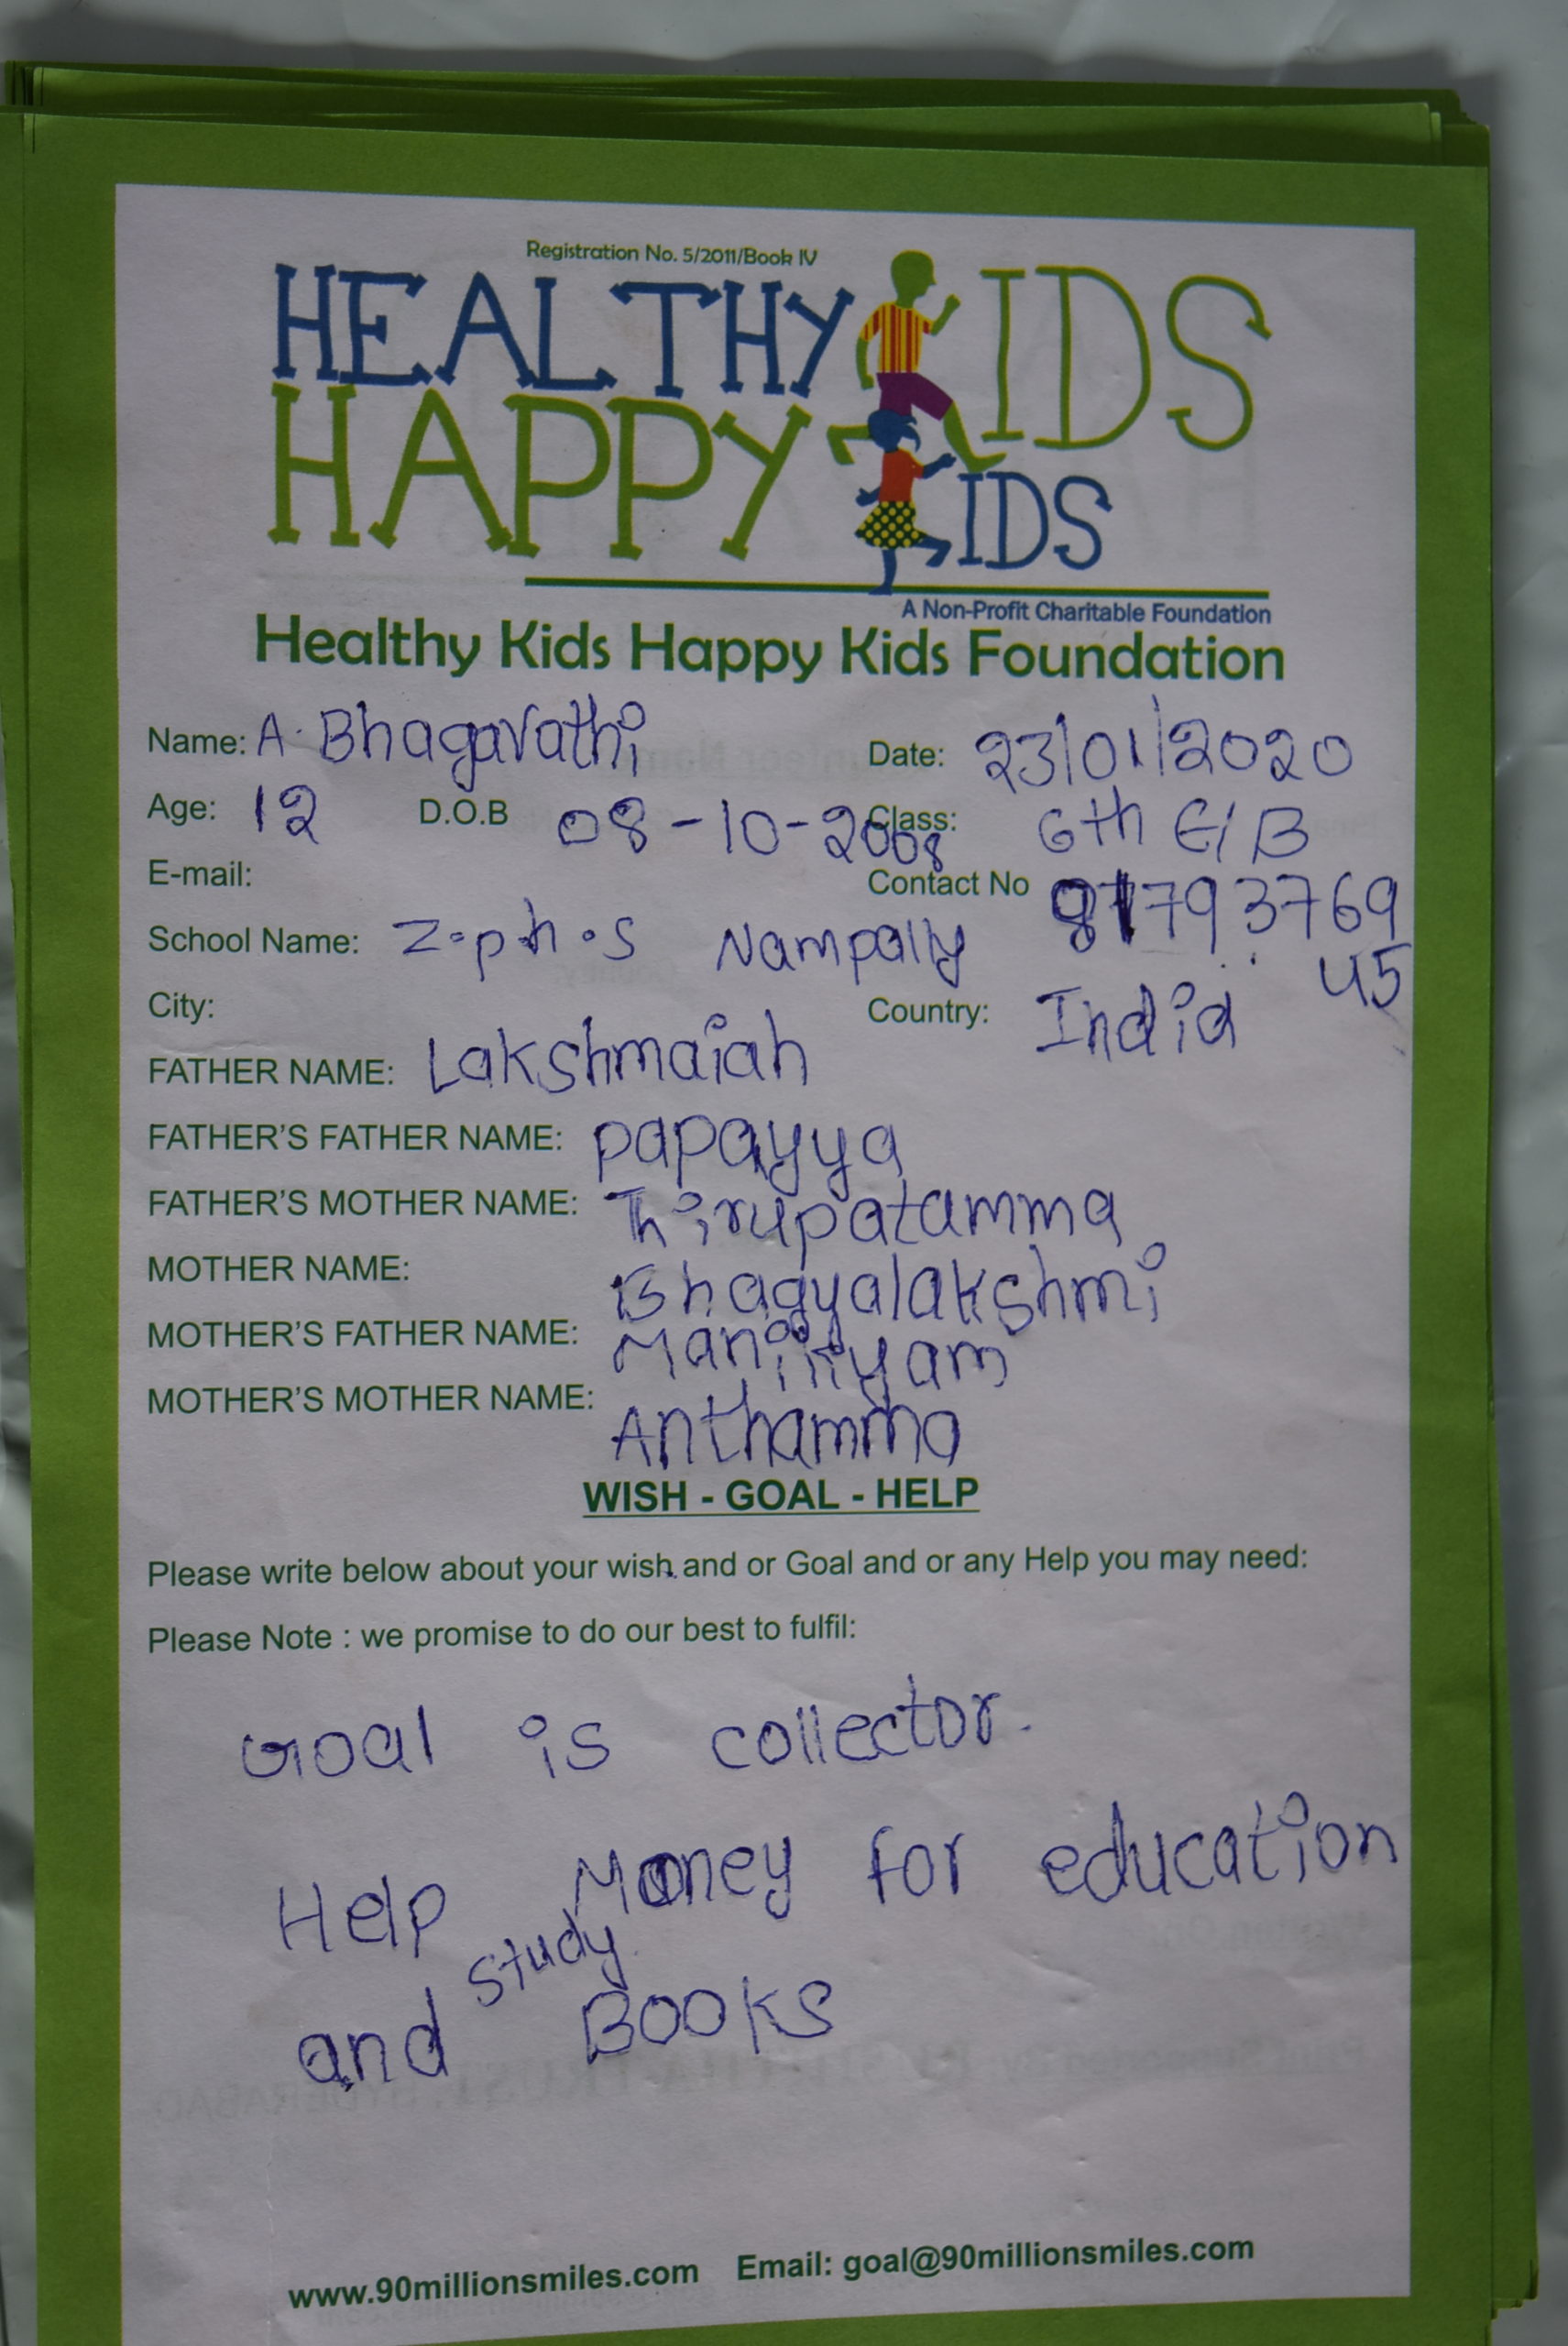 Registration No. 5/2011/Book IV
HEALTHY KIDS
HAPPY KIDS
A Non-Profit Charitable Foundation
Healthy Kids Happy Kids Foundation
Name: A. Bhagavathi Date: 23/01/2020
Age: 12 D.O.B 08-10-2008 Class: 6th E/B
E-mail: Contact No 793769
School Name: Z.p.h.s Nampally 45
City: Country: India
FATHER NAME: Lakshmaiah
FATHER'S FATHER NAME: papayya
FATHER'S MOTHER NAME: Thirupatamma
MOTHER NAME: Bhagyalakshmi
MOTHER'S FATHER NAME:
MOTHER'S MOTHER NAME: Anthamma
WISH - GOAL - HELP
Please write below about your wish and or Goal and or any Help you may need:
Please Note : we promise to do our best to fulfil:
Goal is collector.
Help Money for education
and study Books
www.90millionsmiles.com Email: goal@90millionsmiles.com